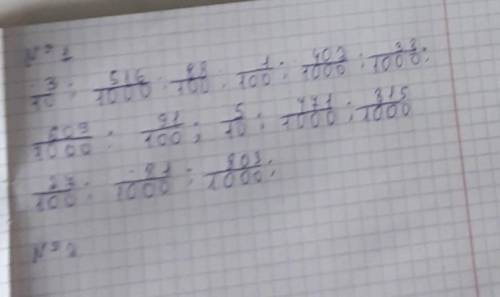 № 1
3/10; 516/1000; 98/100; 1/100; 403/1000; 33/1000;
609/1000; 91/100; 5/10; 771/1000; 315/1000
27/100; 91/1000; 903/1000;
№ 2